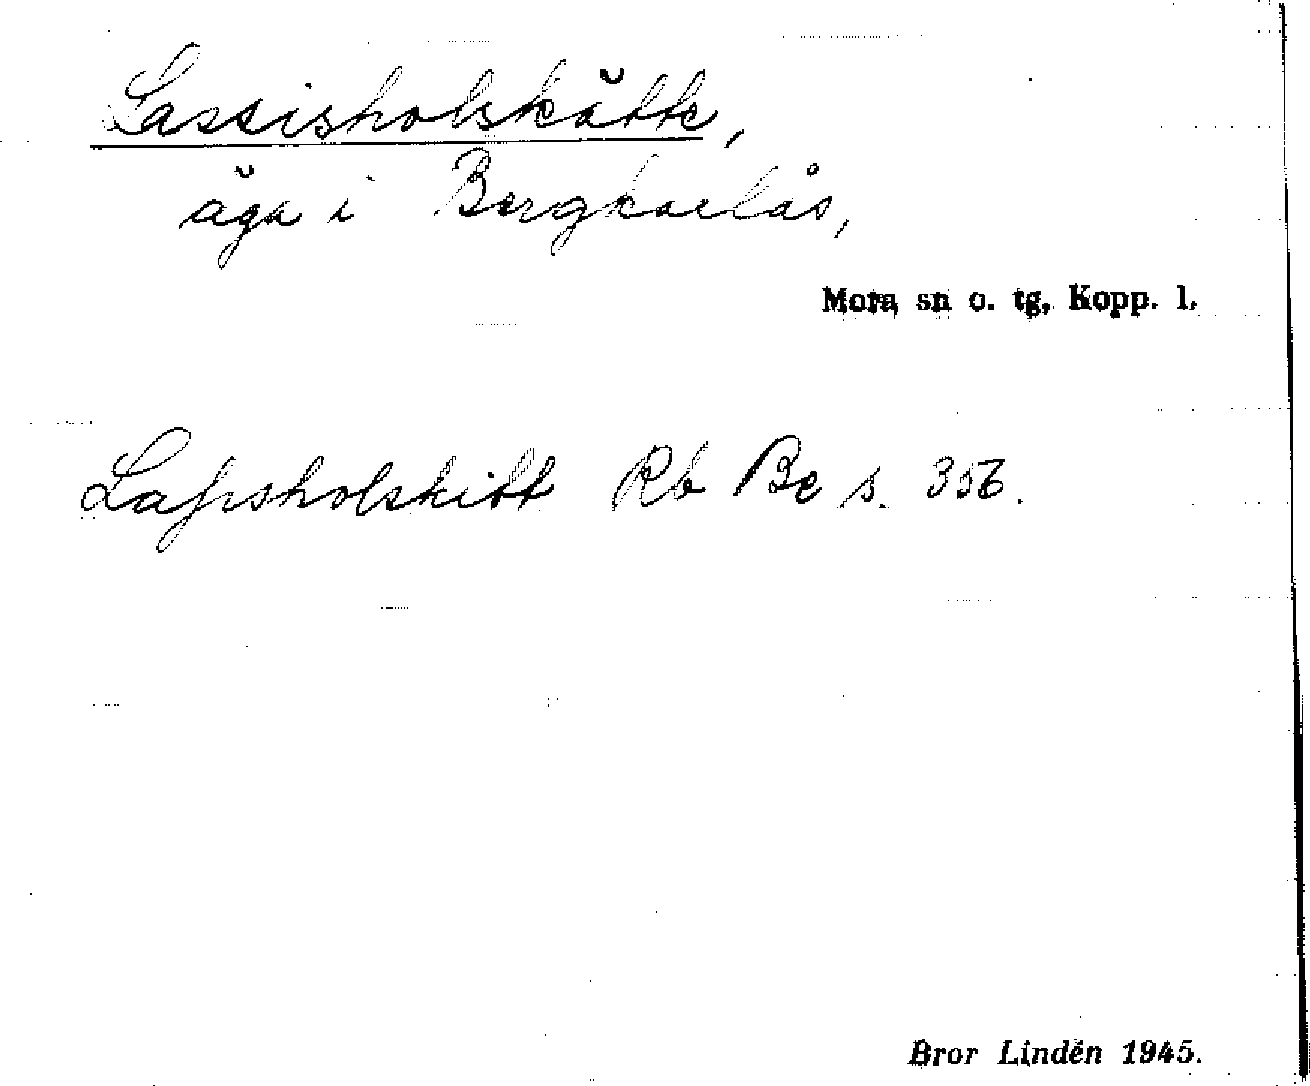 Lassisholskätte,
äga i Bergkarlås,
Mora sn o. tg, Kopp. l.
Lapsholskitt Rb Be s. 356.
Bror Lindén 1945.